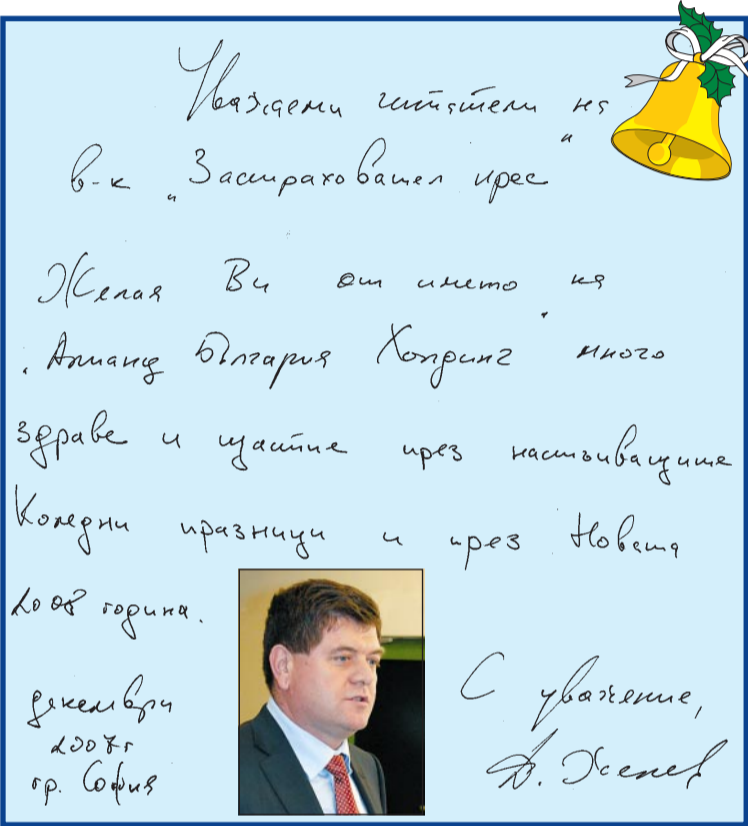 Уважаеми читатели на
в-к „Застраховател прес"
Желая Ви от името на
„Алианц България Холдинг" много
здраве и щастие през настъпващите
Коледни празници и през Новата
2008 година.
декември
2007 г
гр. София
С уважение,
Д. Желев